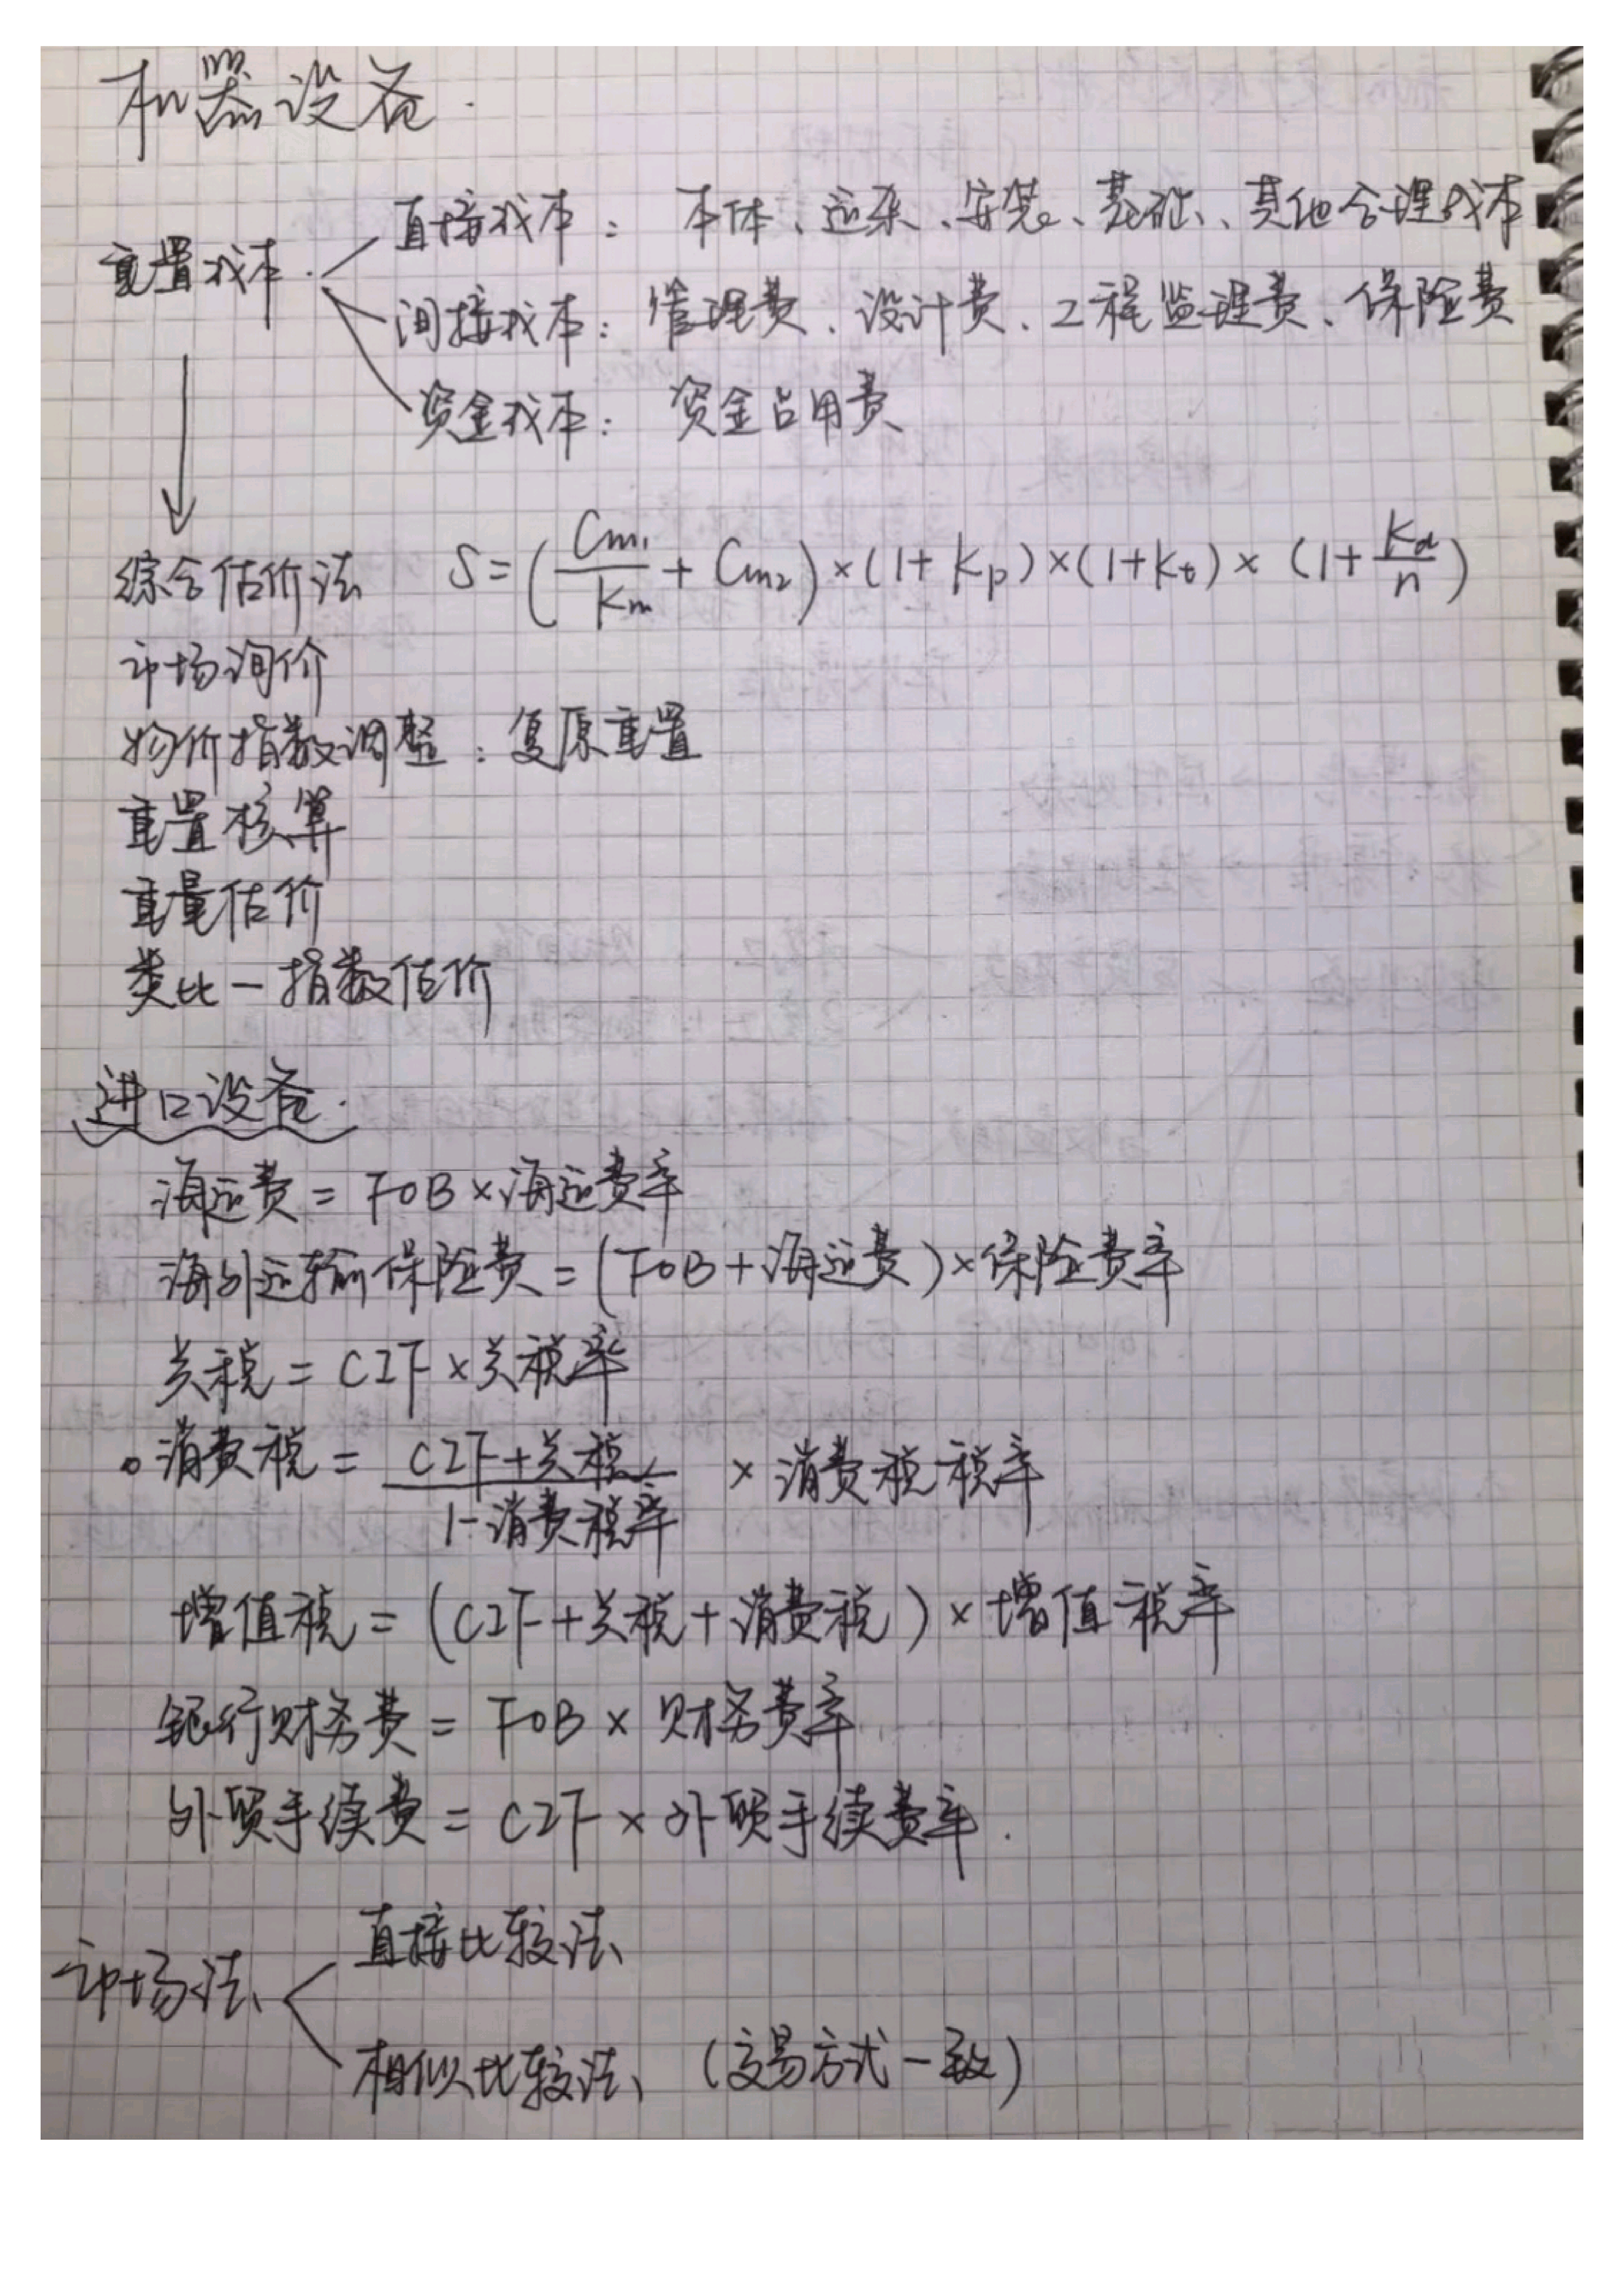 机器设备
重置成本
直接成本：本体、运杂、安装、基础、其他合理成本
间接成本：管理费、设计费、工程监理费、保险费
资金成本：资金占用费
综合估价法 S=(Cm₁/Km + Cm₂)×(1+Kp)×(1+Kt)×(1+Kd/n)
市场询价
物价指数调整：复原重置
重置核算
重量估价
类比－指数估价
进口设备
海运费=FOB×海运费率
海外运输保险费=(FOB+海运费)×保险费率
关税=CIF×关税率
消费税=(CIF+关税)/(1-消费税率)×消费税税率
增值税=(CIF+关税+消费税)×增值税率
银行财务费=FOB×财务费率
外贸手续费=CIF×外贸手续费率
市场法
直接比较法
相似比较法（交易方式一致）